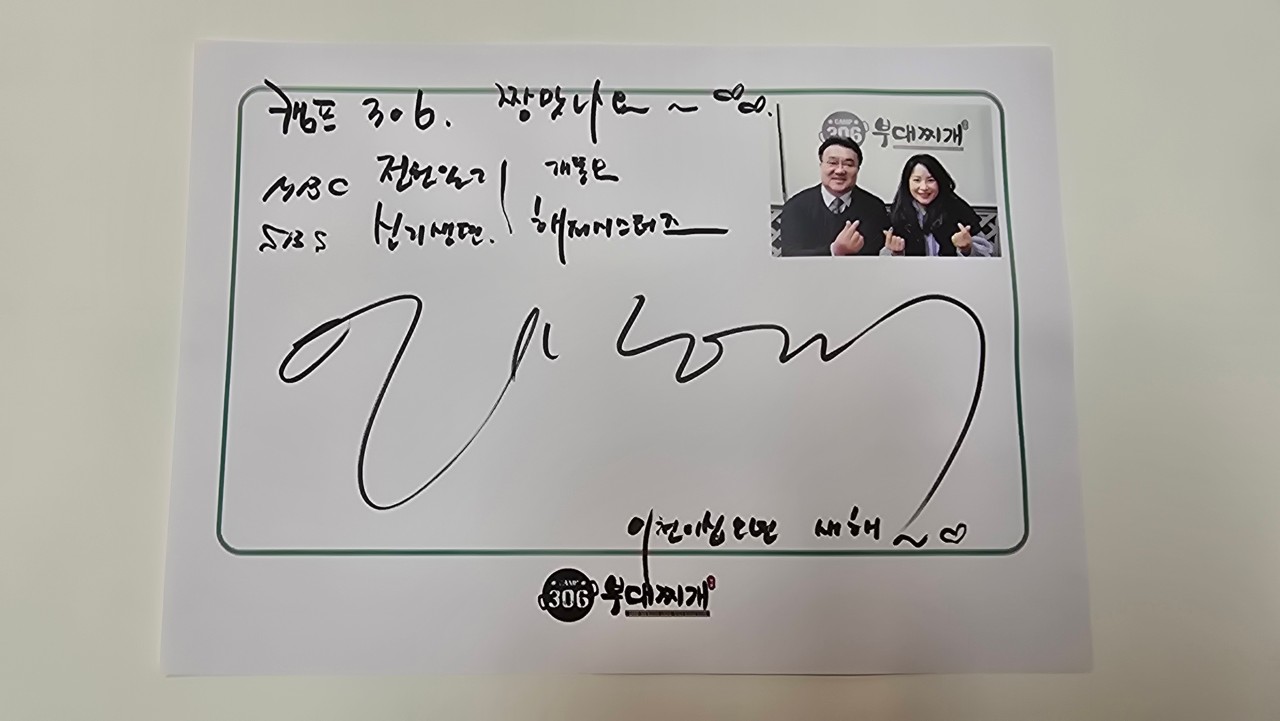 캠프 306. 짱맛나요~
CAMP
306 부대찌개
MBC 전원일기 개똥엄
SBS 신기생뎐. 해피시스터즈
이천이십오년 새해~
CAMP
306 부대찌개